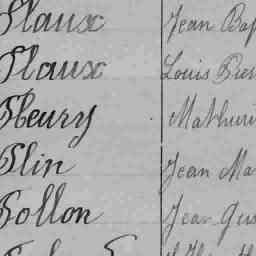 Flaux Jean Bap
Flaux Louis Pier
Fleury Mathuri
Flin Jean Ma
Follon Jean Gus